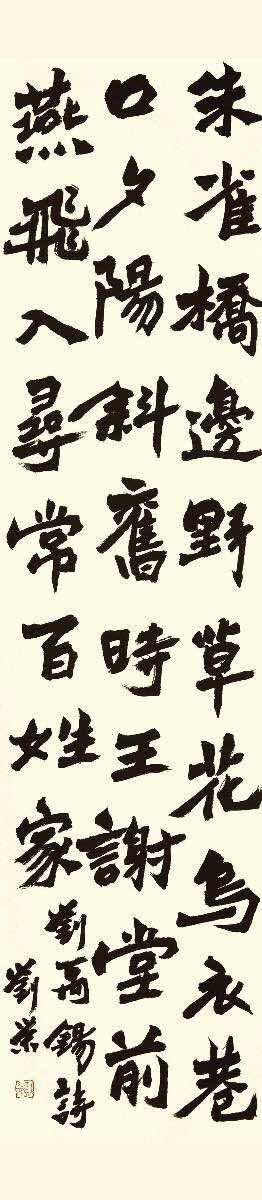 朱雀橋邊野草花烏衣巷
口夕陽斜舊時王謝堂前
燕飛入尋常百姓家
劉禹錫詩
劉業